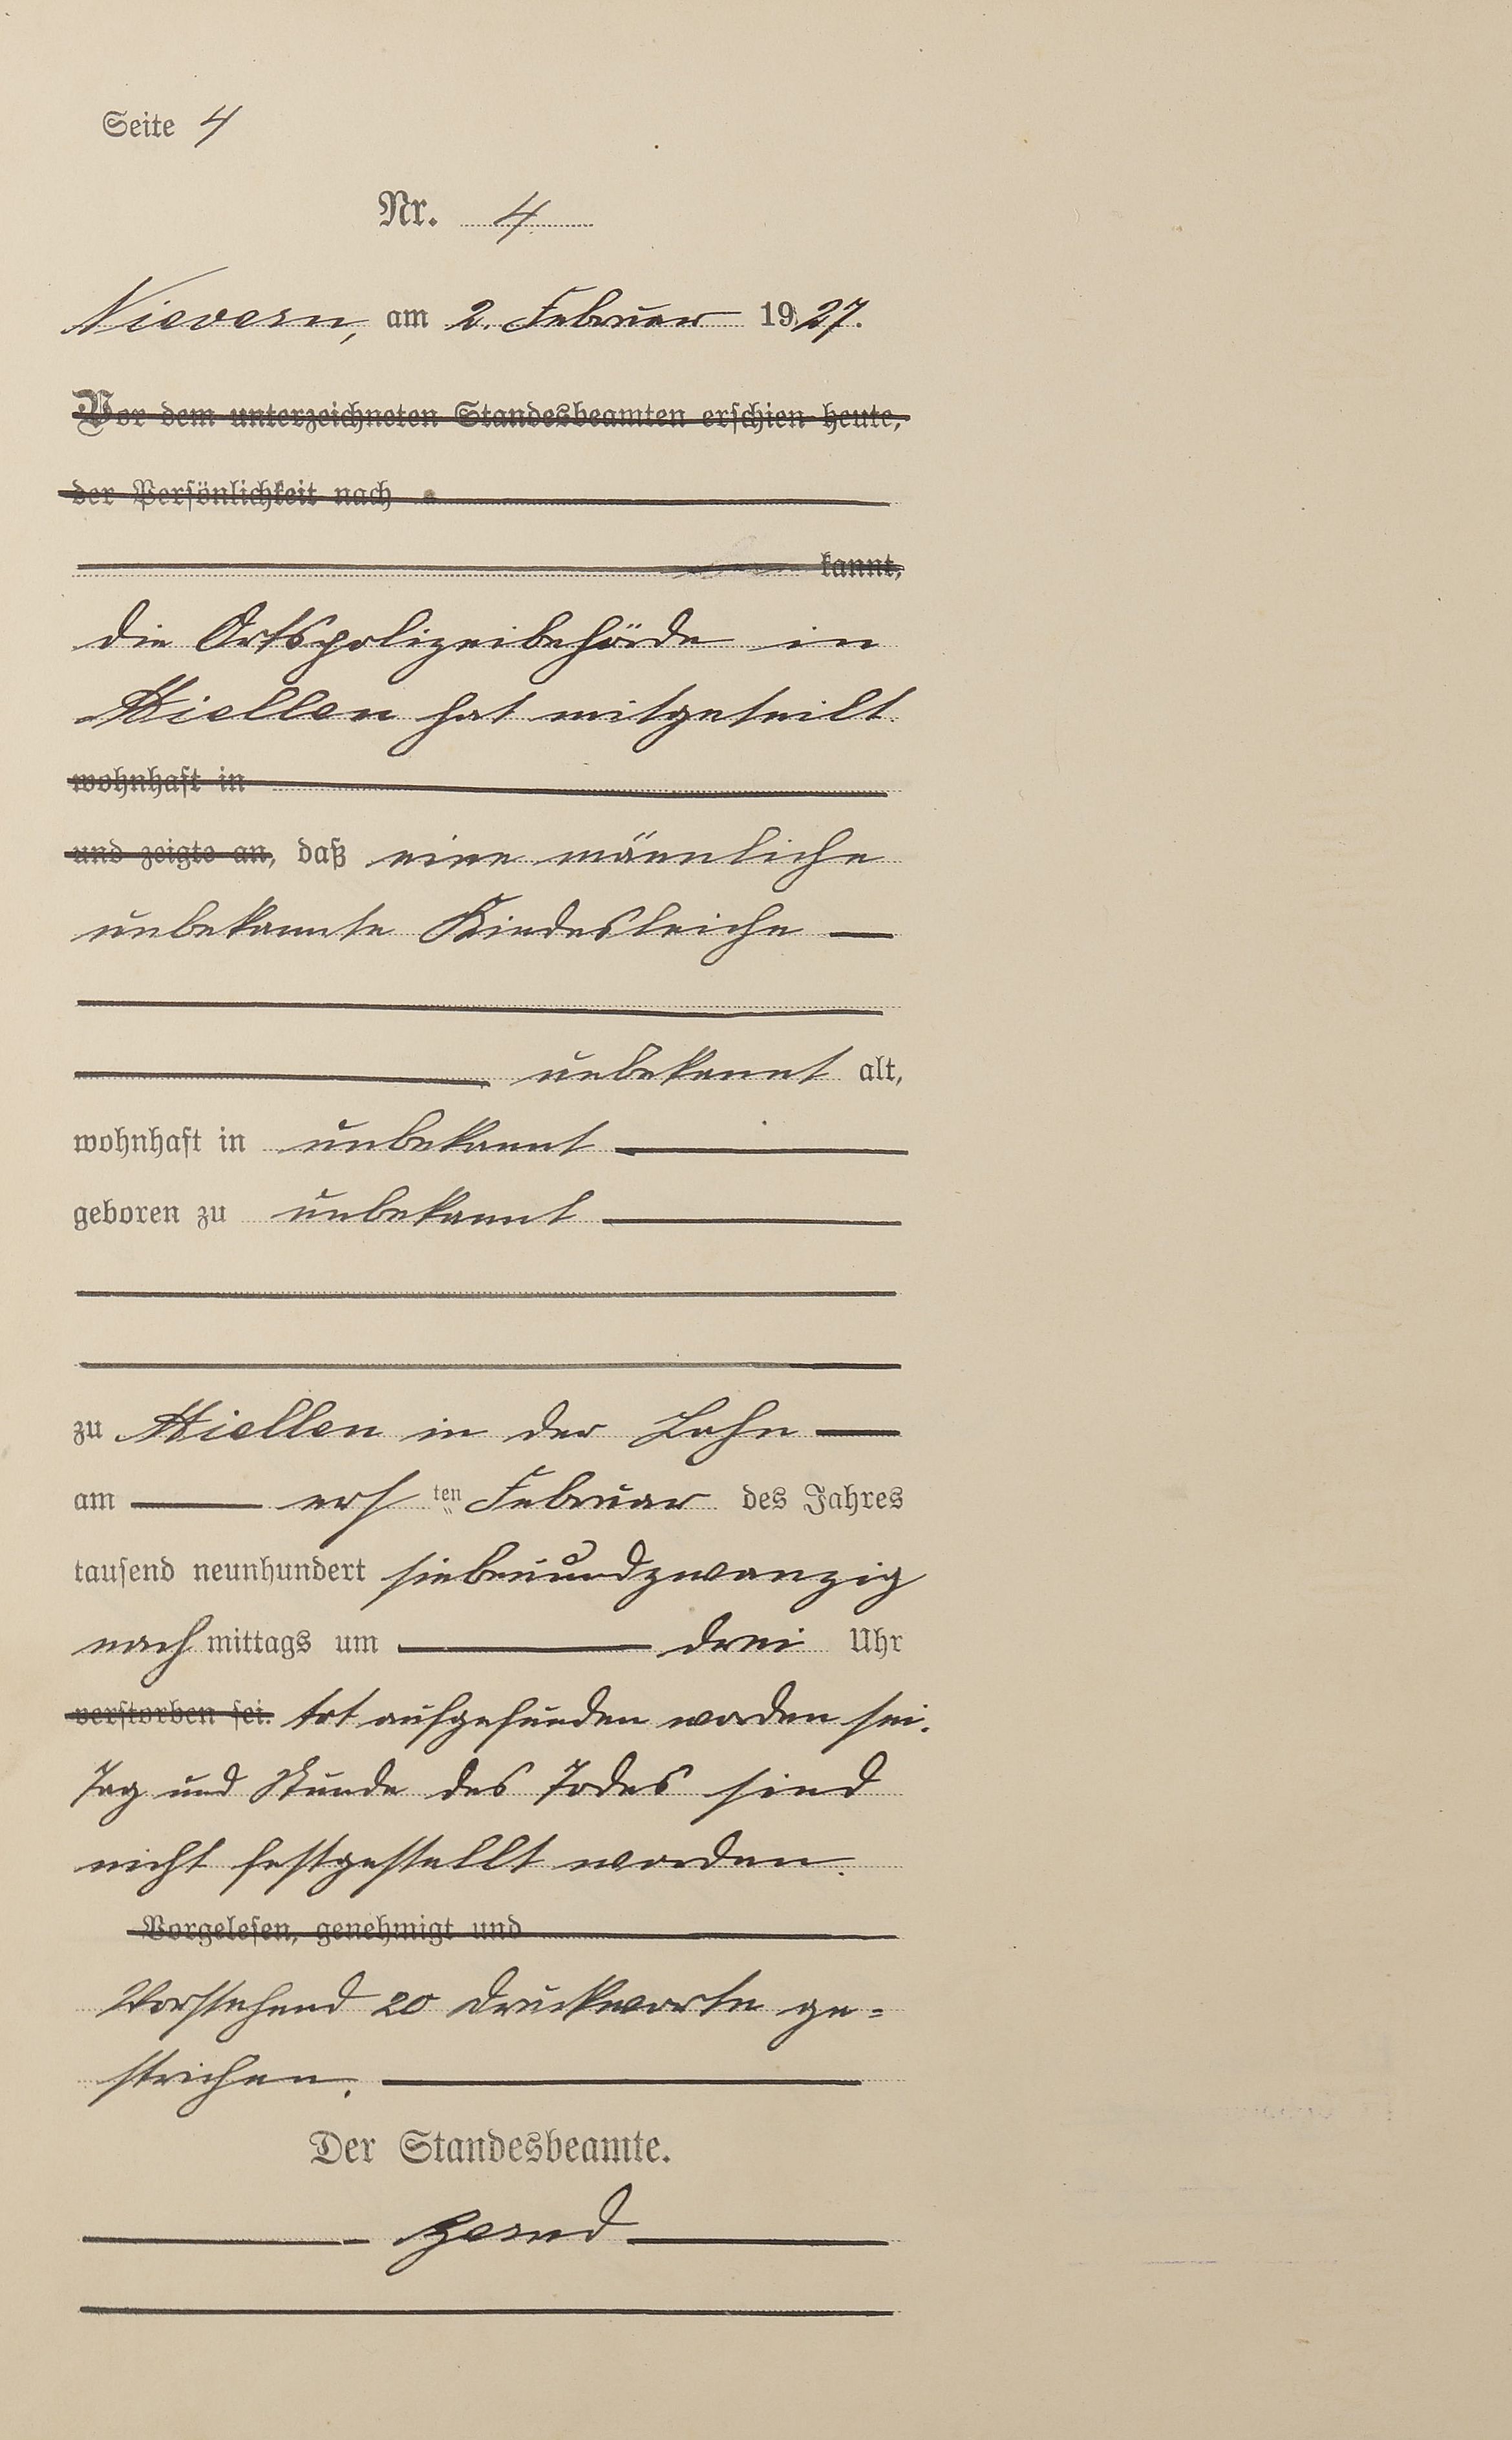 Seite 4
Nr. 4
Nievern, am 2. Februar 1927.
Vor dem unterzeichneten Standesbeamten erschien heute,
der Persönlichkeit nach
kannt,
die Ortspolizeibehörde in
Miellen hat mitgeteilt
wohnhaft in
und zeigte an, daß eine männliche
unbekannte Kindesleiche
unbekannt alt,
wohnhaft in unbekannt
geboren zu unbekannt
zu Miellen in der Lahn
am ersten Februar des Jahres
tausend neunhundert siebenundzwanzig
nachmittags um drei Uhr
verstorben sei. tot aufgefunden worden sei.
Tag und Stunde des Todes sind
nicht festgestellt worden.
Vorgelesen, genehmigt und
Vorstehend 20 Druckworte ge-
strichen.
Der Standesbeamte.